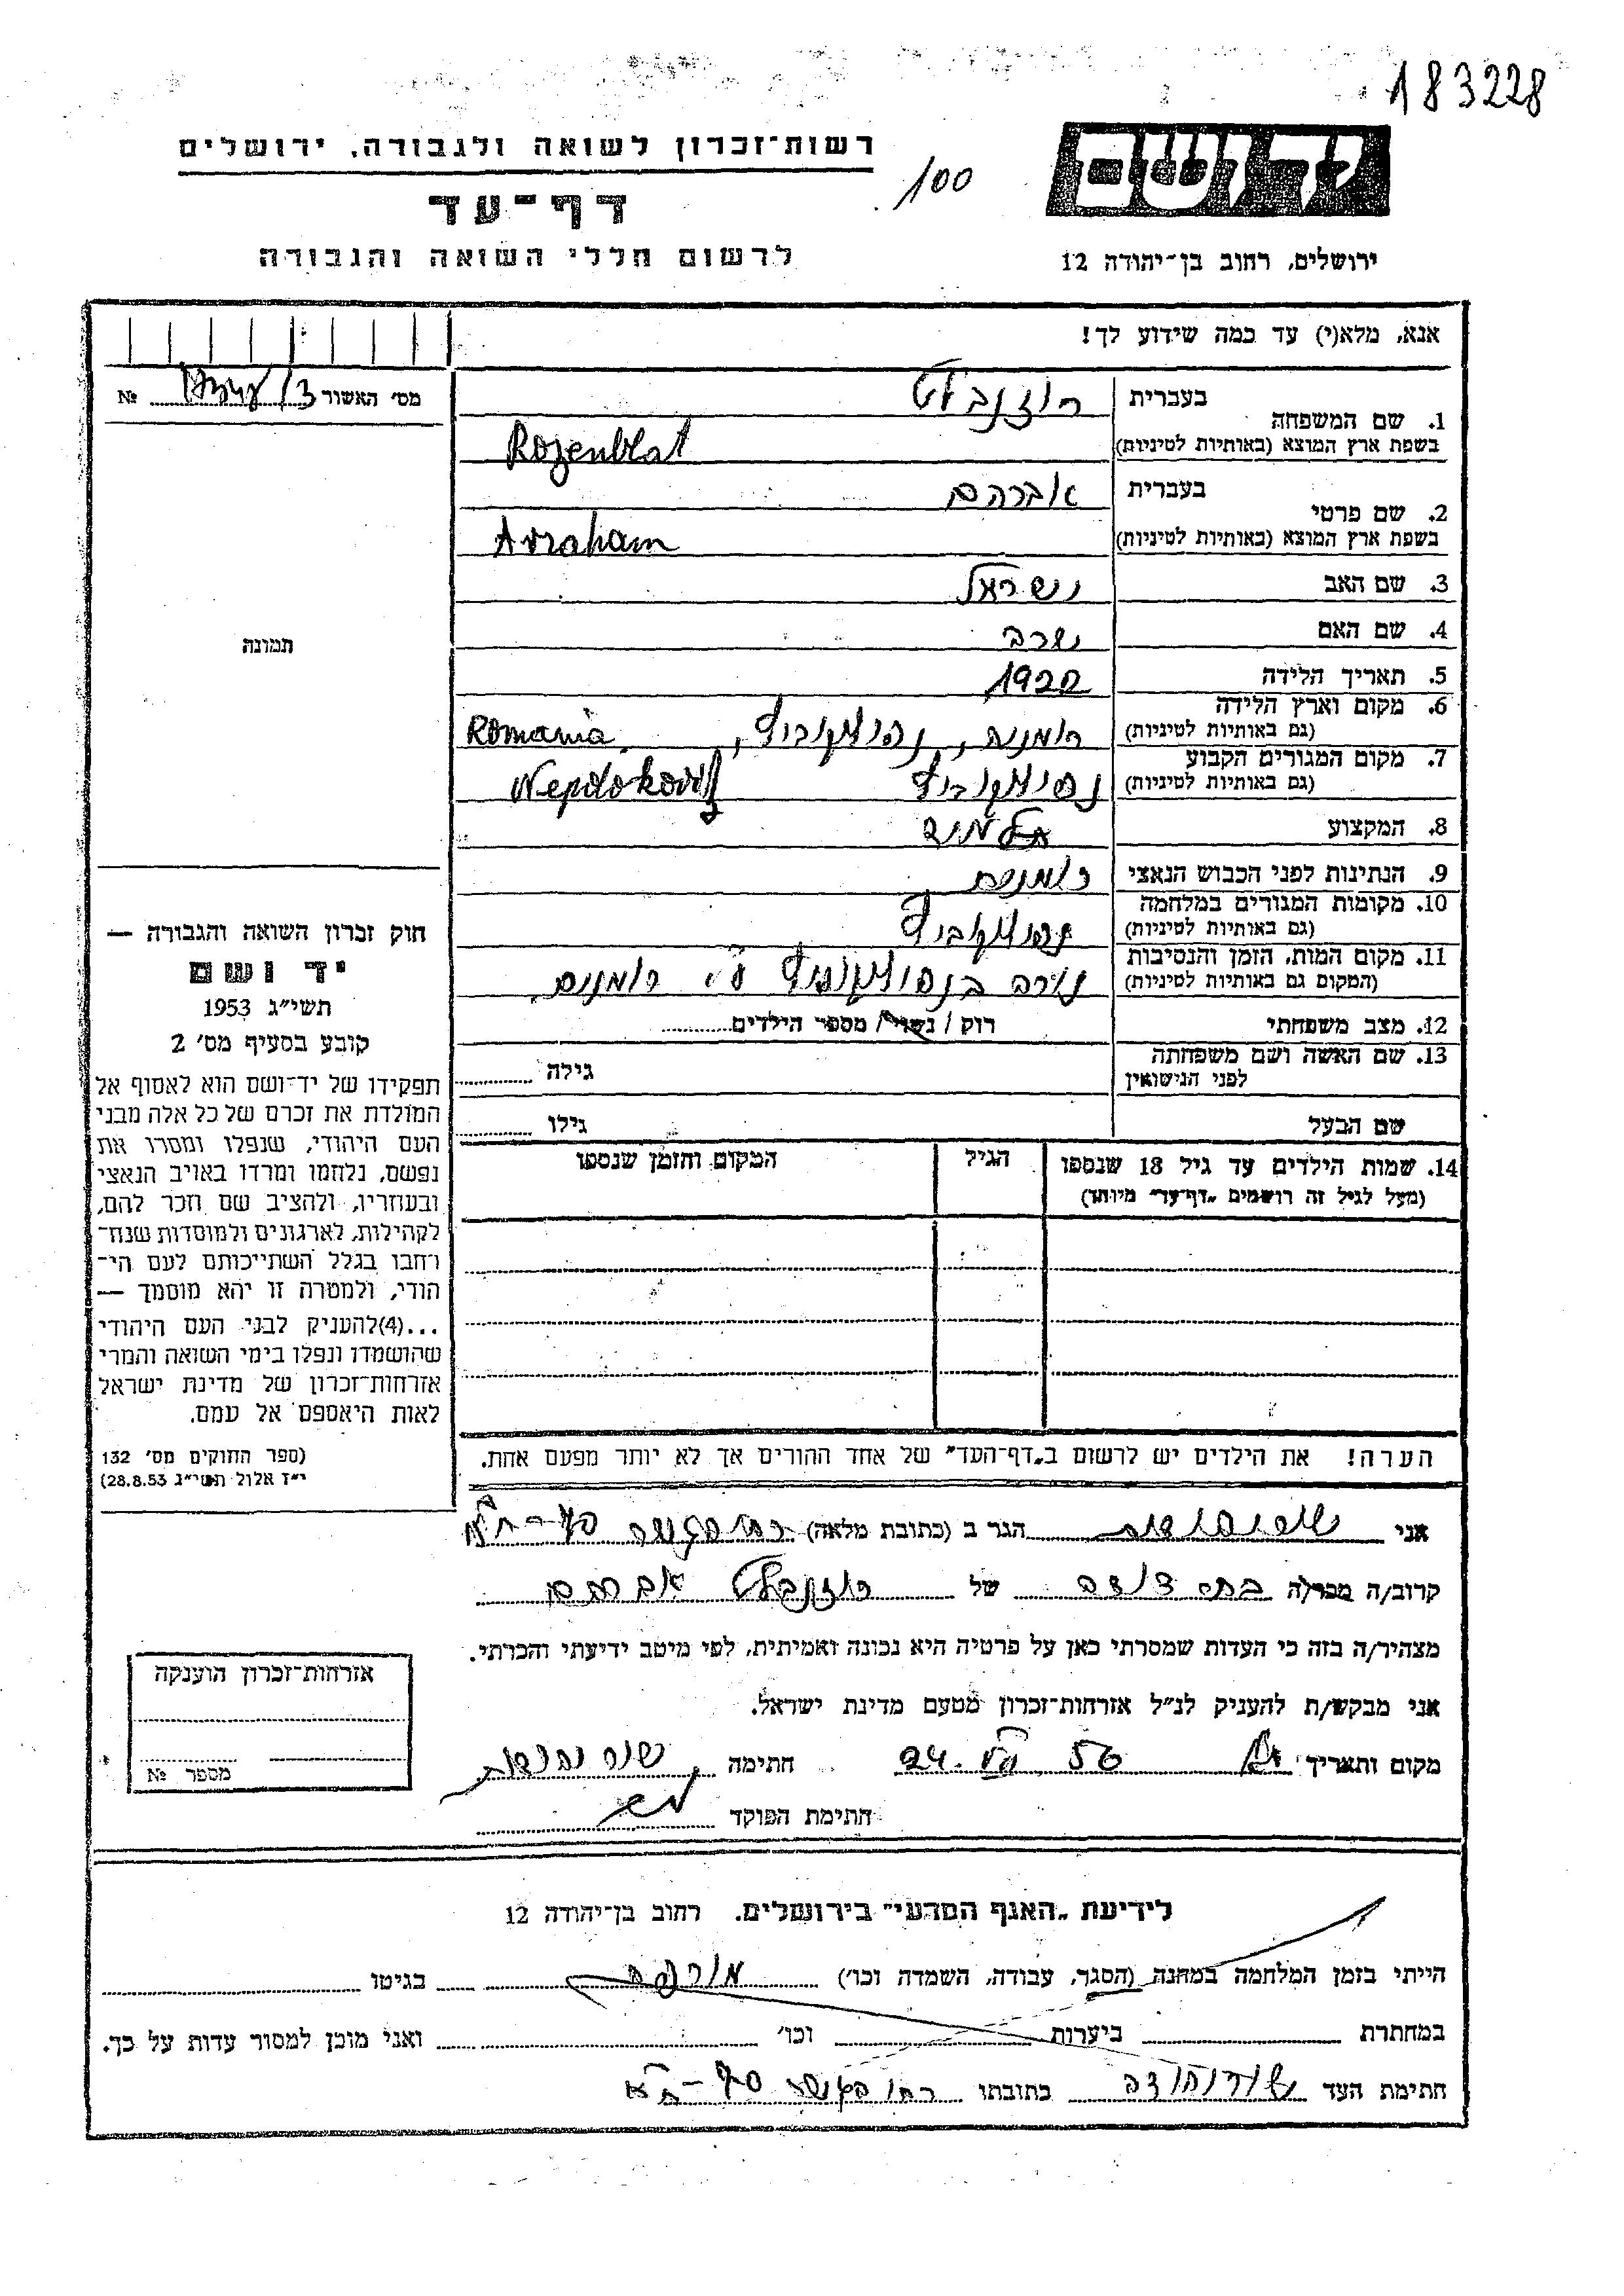 183228
רשות־זכרון לשואה ולגבורה, ירושלים
100
יד ושם
דף־עד
לרשום חללי השואה והגבורה
ירושלים, רחוב בן־יהודה 12
אנא, מלא(י) עד כמה שידוע לך!
מס׳ האשור №
1. שם המשפחה בעברית רוזנבלט
בשפת ארץ המוצא (באותיות לטיניות) Rozenblat
2. שם פרטי בעברית אברהם
בשפת ארץ המוצא (באותיות לטיניות) Avraham
3. שם האב ישראל
4. שם האם
תמונה
5. תאריך הלידה 1922
6. מקום וארץ הלידה
(גם באותיות לטיניות) רומניה, Romania
7. מקום המגורים הקבוע
(גם באותיות לטיניות)
8. המקצוע תלמיד
9. הנתינות לפני הכבוש הנאצי
10. מקומות המגורים במלחמה
(גם באותיות לטיניות)
11. מקום המות, הזמן והנסיבות
(המקום גם באותיות לטיניות) ע״י רומנים.
12. מצב משפחתי רוק / נשוי / מספר הילדים
13. שם האשה ושם משפחתה
לפני הנישואין גילה
שם הבעל גילו
14. שמות הילדים עד גיל 18 שנספו הגיל המקום והזמן שנספו
(מעל לגיל זה רושמים „דף־עד״ מיוחד)
הערה! את הילדים יש לרשום ב„דף־העד״ של אחד ההורים אך לא יותר מפעם אחת.
חוק זכרון השואה והגבורה —
יד ושם
תשי״ג 1953
קובע בסעיף מס׳ 2
תפקידו של יד־ושם הוא לאסוף אל
המולדת את זכרם של כל אלה מבני
העם היהודי, שנפלו ומסרו את
נפשם, נלחמו ומרדו באויב הנאצי
ובעוזריו, ולהציב שם וזכר להם,
לקהילות, לארגונים ולמוסדות שנח־
רחבו בגלל השתייכותם לעם הי־
הודי, ולמטרה זו יהא מוסמך —
...(4)להעניק לבני העם היהודי
שהושמדו ונפלו בימי השואה והמרי
אזרחות־זכרון של מדינת ישראל
לאות היאספם אל עמם.
(ספר החוקים מס׳ 132
י״ז אלול תשי״ג 28.8.53)
אני הגר ב (כתובת מלאה)
קרוב/ה מכר/ה בת דודה של רוזנבלט אברהם
מצהיר/ה בזה כי העדות שמסרתי כאן על פרטיה היא נכונה ואמיתית, לפי מיטב ידיעתי והכרתי.
אני מבקש/ת להעניק לנ״ל אזרחות־זכרון מטעם מדינת ישראל.
מקום ותאריך 24. VII 56 חתימה
חתימת הפוקד
אזרחות־זכרון הוענקה
מספר №
לידיעת „האגף המדעי״ בירושלים. רחוב בן־יהודה 12
הייתי בזמן המלחמה במחנה (הסגר, עבודה, השמדה וכו׳) בגיטו
במחתרת ביערות וכו׳ ואני מוכן למסור עדות על כך.
חתימת העד כתובתו